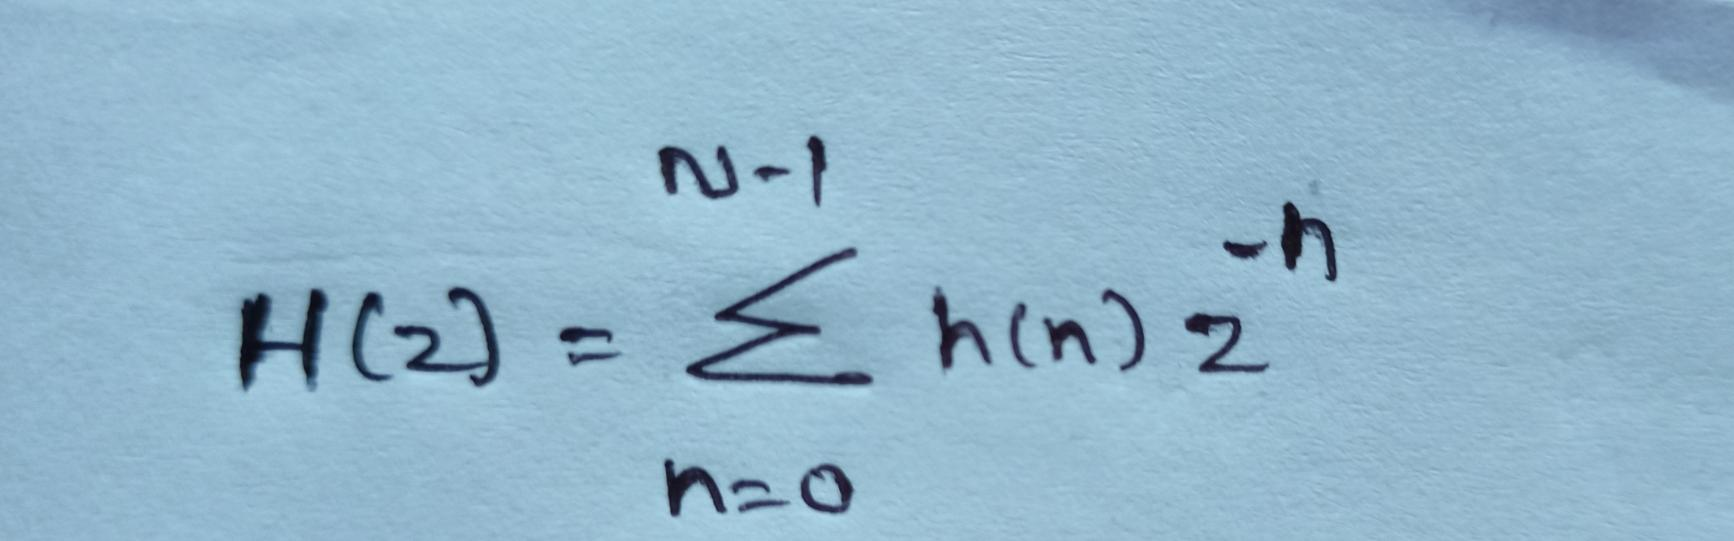 H(z) = \sum_{n=0}^{N-1} h(n) z^{-n}